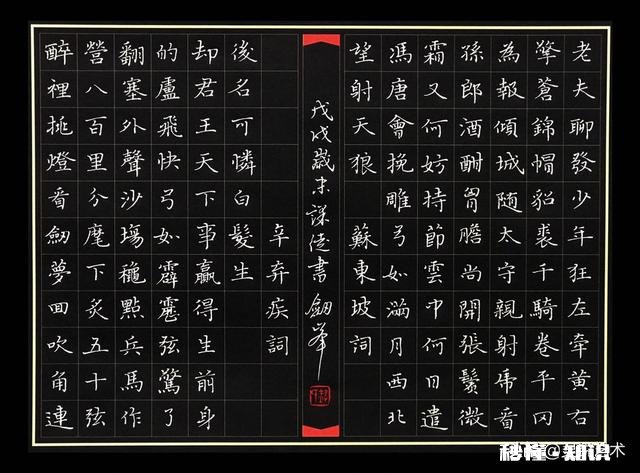 老夫聊發少年狂左牽黄右
擎蒼錦帽貂裘千騎卷平冈
為報傾城隨太守親射虎看
孫郎酒酣胷膽尚開張鬢微
霜又何妨持節雲中何日遣
馮唐會挽雕弓如滿月西北
望射天狼
蘇東坡詞
戊戌歲末課徒書 劍峯
醉裡挑燈看劍夢回吹角連
營八百里分麾下炙五十弦
翻塞外聲沙場穐點兵馬作
的盧飛快弓如霹靂弦驚了
却君王天下事贏得生前身
後名可憐白髮生
辛弃疾詞